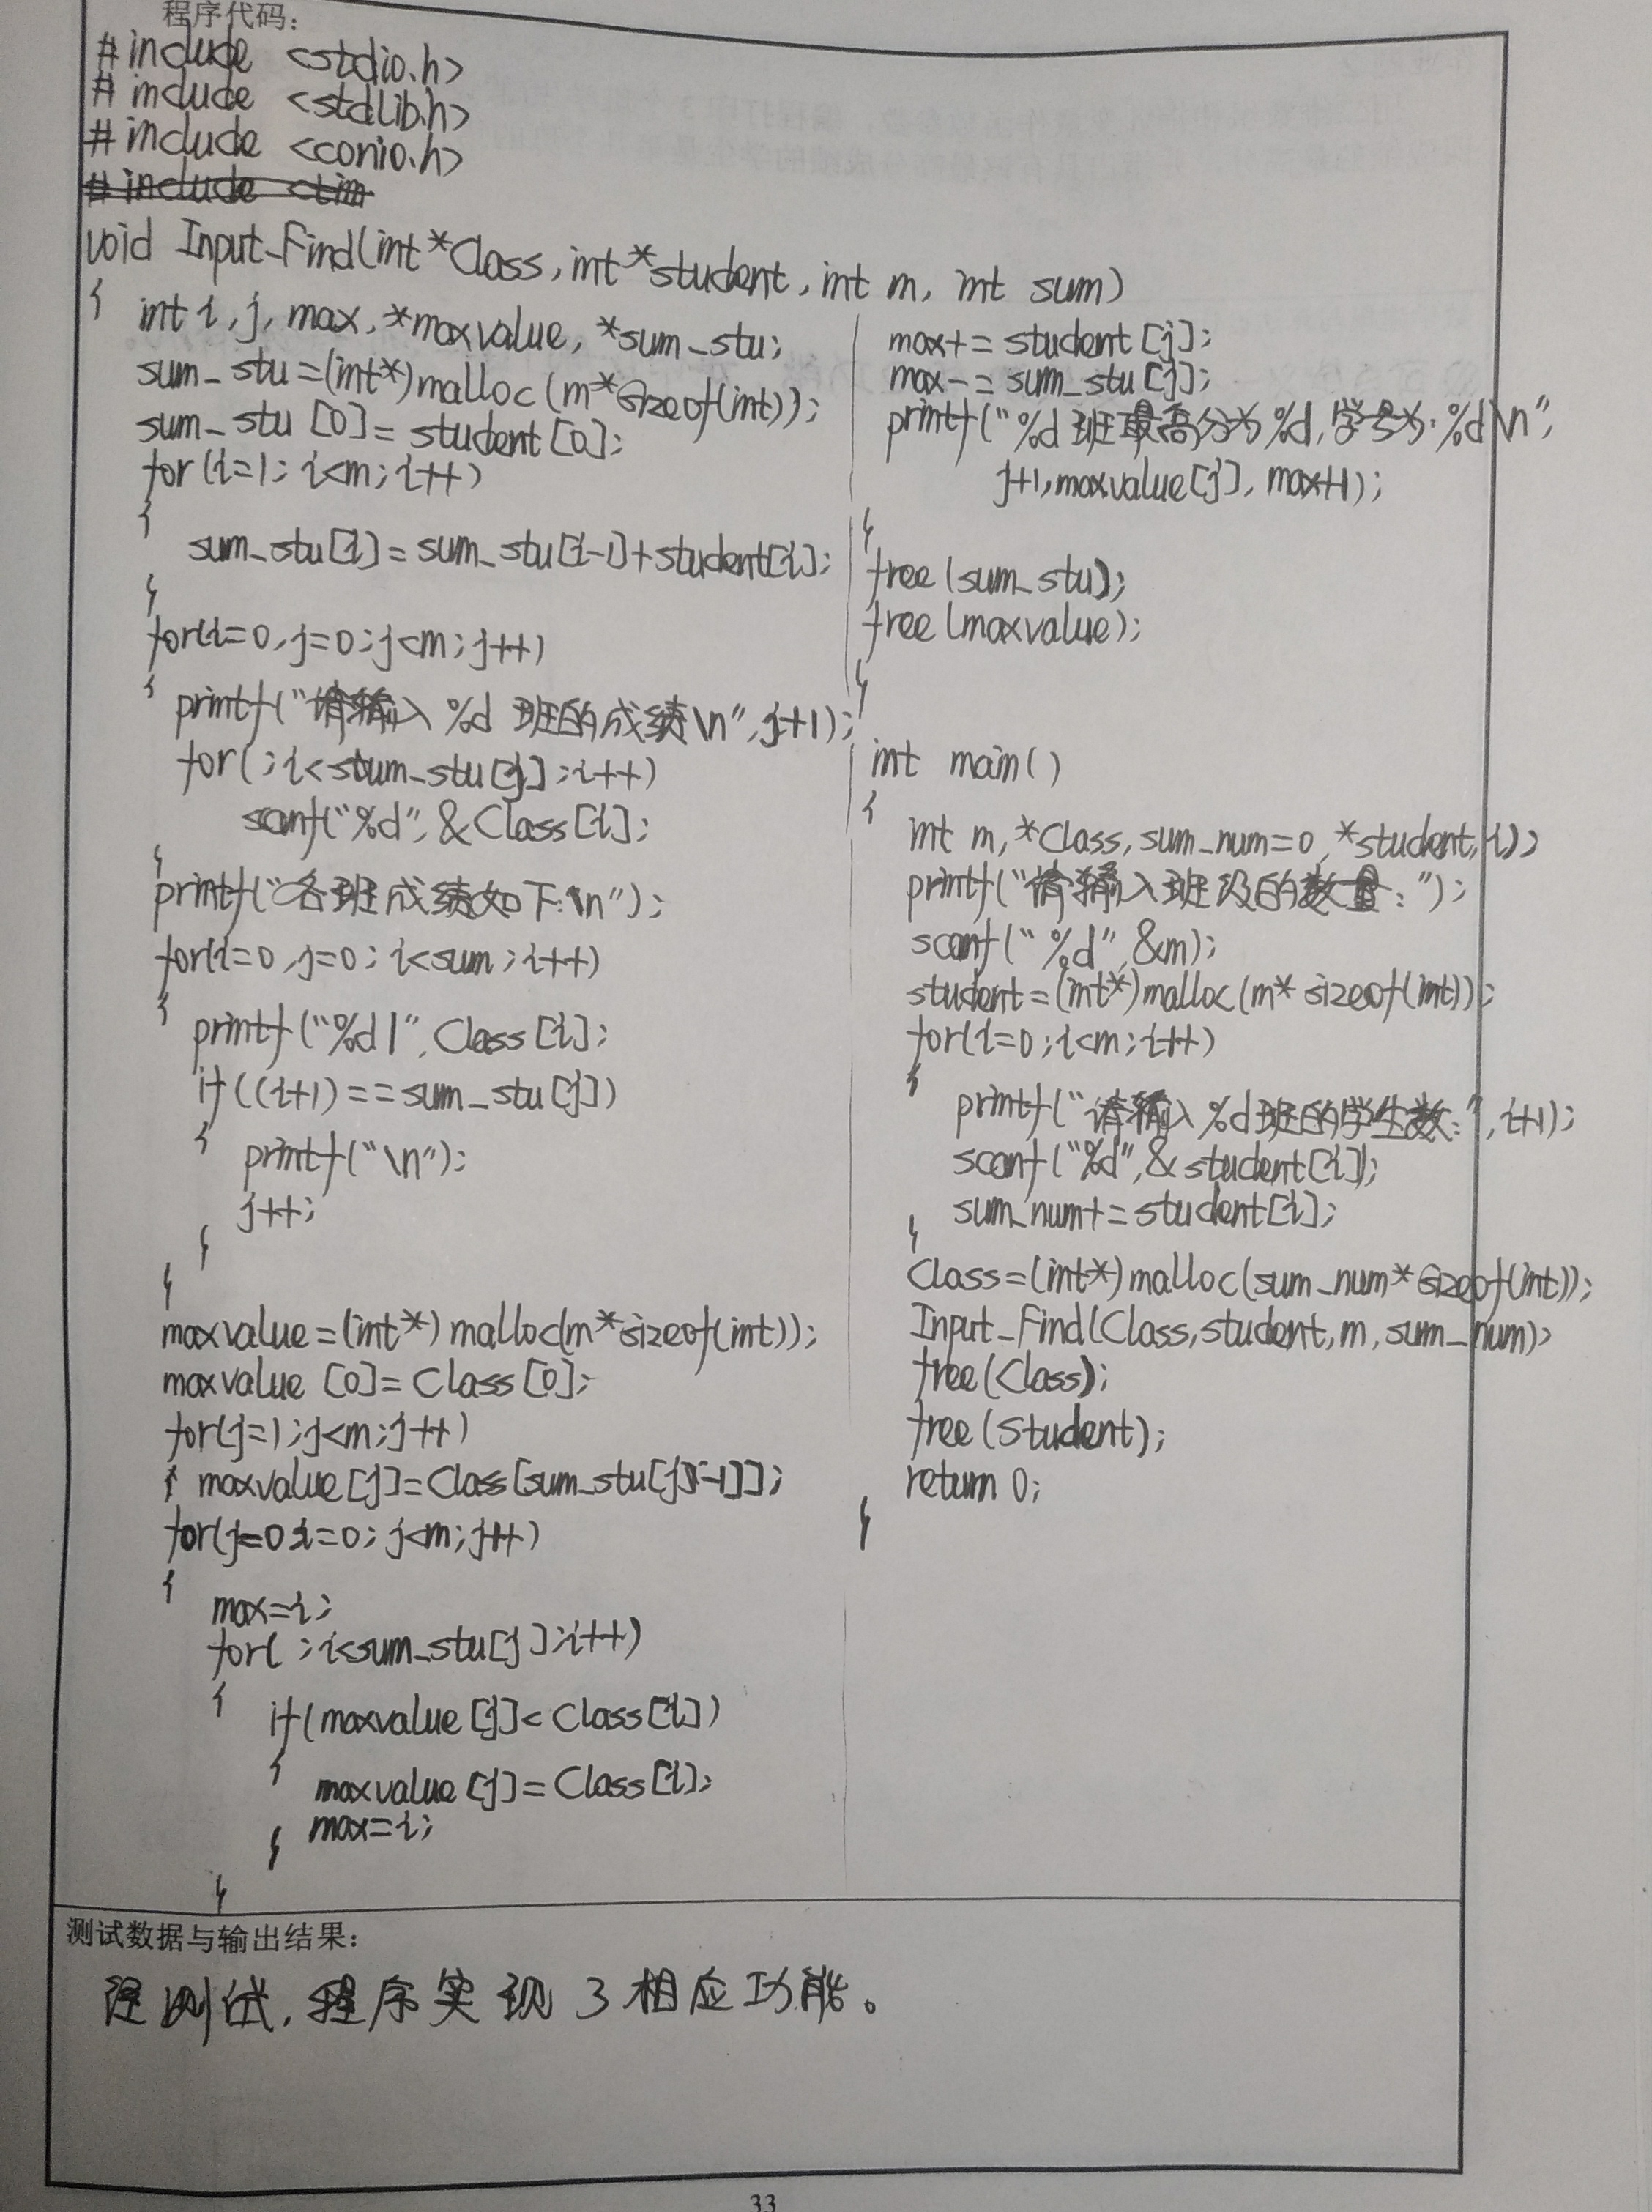 程序代码：
#include <stdio.h>
#include <stdlib.h>
#include <conio.h>
void Input_Find(int*Class,int*student,int m, int sum)
{
int i,j,max,*maxvalue,*sum_stu;
sum_stu=(int*)malloc(m*sizeof(int));
sum_stu[0]=student[0];
for(i=1;i<m;i++)
{
sum_stu[i]=sum_stu[i-1]+student[i];
}
for(i=0,j=0;j<m;j++)
{
printf("请输入%d 班的成绩\n",j+1);
for(;i<stum_stu[j];i++)
scanf("%d",&Class[i];
}
printf("各班成绩如下:\n");
for(i=0,j=0;i<sum;i++)
{
printf("%d|",Class[i];
if((i+1)==sum_stu[j])
{
printf("\n");
j++;
}
}
maxvalue=(int*)malloc(m*sizeof(int));
maxvalue[0]=Class[0];
for(j=1;j<m;j++)
{ maxvalue[j]=Class[sum_stu[j-1]];
for(j=0,i=0;j<m;j++)
{
max=i;
for(;i<sum_stu[j];i++)
{
if(maxvalue[j]<Class[i])
{
maxvalue[j]=Class[i];
max=i;
}
}
max+=student[j];
max-=sum_stu[j];
printf("%d班最高分为%d,学号为:%d\n",
j+1,maxvalue[j],max+1);
}
free(sum_stu);
free(maxvalue);
}
int main()
{
int m,*Class,sum_num=0,*student,i;
printf("请输入班级的数量:");
scanf("%d",&m);
student=(int*)malloc(m*sizeof(int));
for(i=0;i<m;i++)
{
printf("请输入%d班的学生数:",i+1);
scanf("%d",&student[i]);
sum_num+=student[i];
}
Class=(int*)malloc(sum_num*sizeof(int));
Input_Find(Class,student,m,sum_num);
free(Class);
free(student);
return 0;
}
测试数据与输出结果：
经测试,程序实现了相应功能。
33